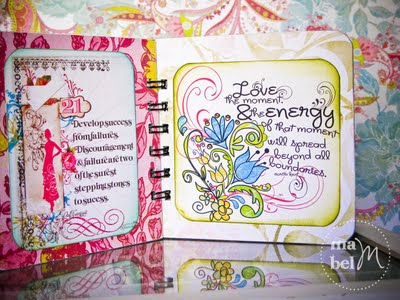 21
Develop success
from failures.
Discouragement
& failure are two
of the surest
stepping stones
to success.
Love
the moment,
& the energy
of that moment
will spread
beyond all
boundaries.
ma
bel M